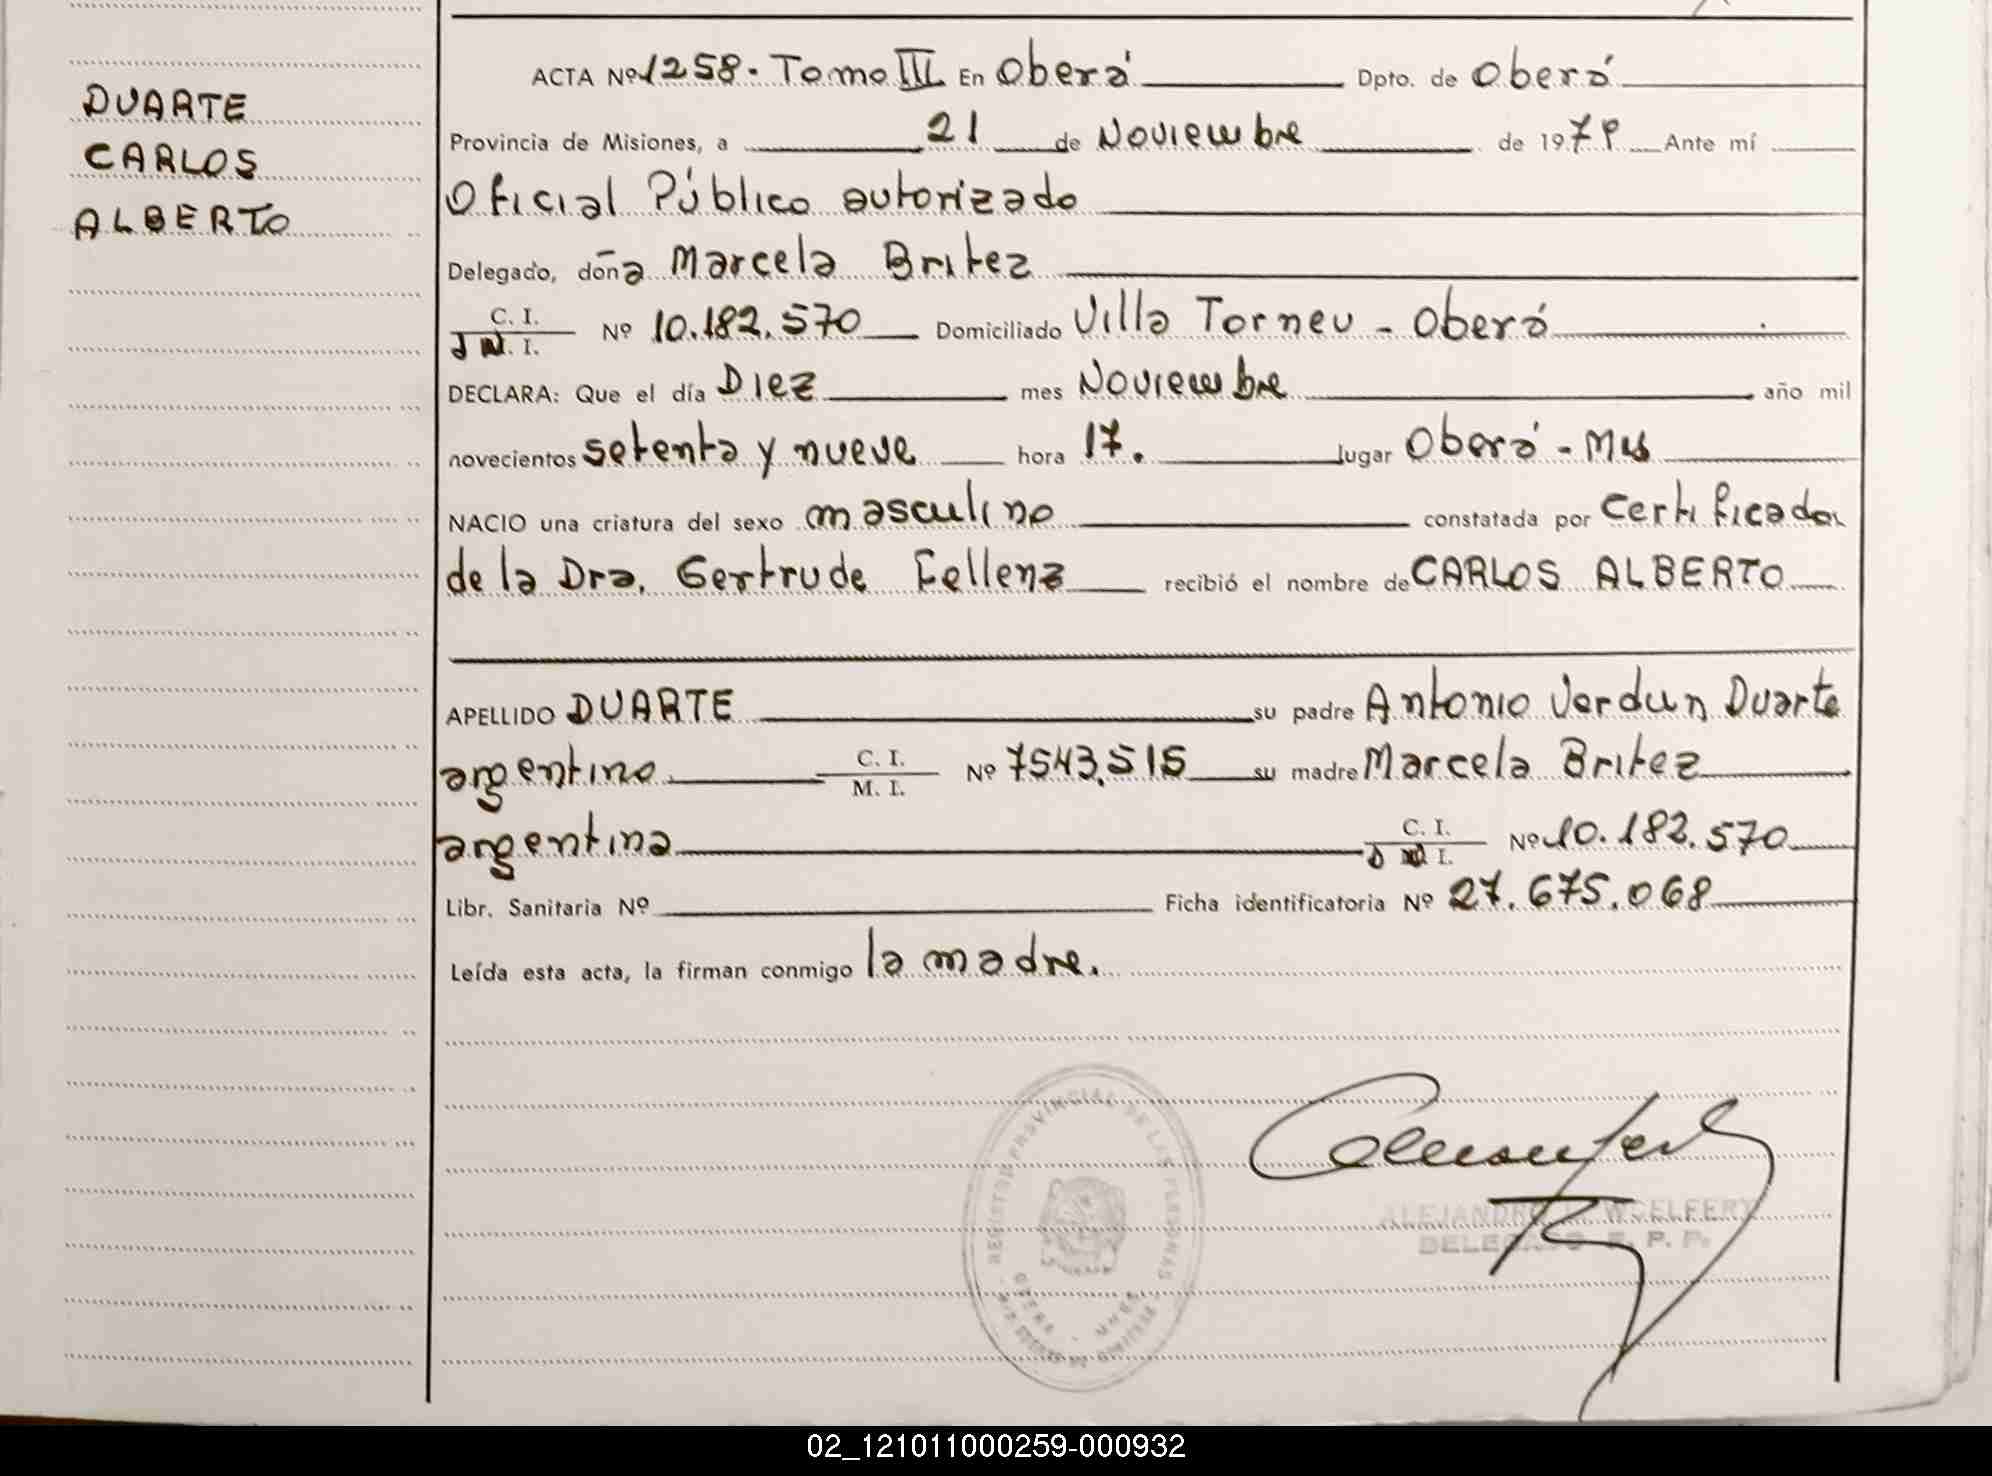 DUARTE
CARLOS
ALBERTO
ACTA Nº 1258. Tomo III En Oberá Dpto. de Oberá
Provincia de Misiones, a 21 de Noviembre de 1979 Ante mí
Oficial Público autorizado
Delegado, doña Marcela Britez
C. I.
D N. I. Nº 10.182.570 Domiciliado Villa Torneu - Oberá
DECLARA: Que el día Diez mes Noviembre año mil
novecientos setenta y nueve hora 17. lugar Oberá - Mns
NACIO una criatura del sexo masculino constatada por Certificado
de la Dra. Gertrude Fellenz recibió el nombre de CARLOS ALBERTO
APELLIDO DUARTE su padre Antonio Verdun Duarte
argentino C. I.
M. I. Nº 7543.515 su madre Marcela Britez
argentina C. I.
D N I. Nº 10.182.570
Libr. Sanitaria Nº Ficha identificatoria Nº 27.675.068
Leída esta acta, la firman conmigo la madre.
REGISTRO PROVINCIAL DE LAS PERSONAS
OBERA
ALEJANDRO
DELEGADO R. P. P.
02_121011000259-000932